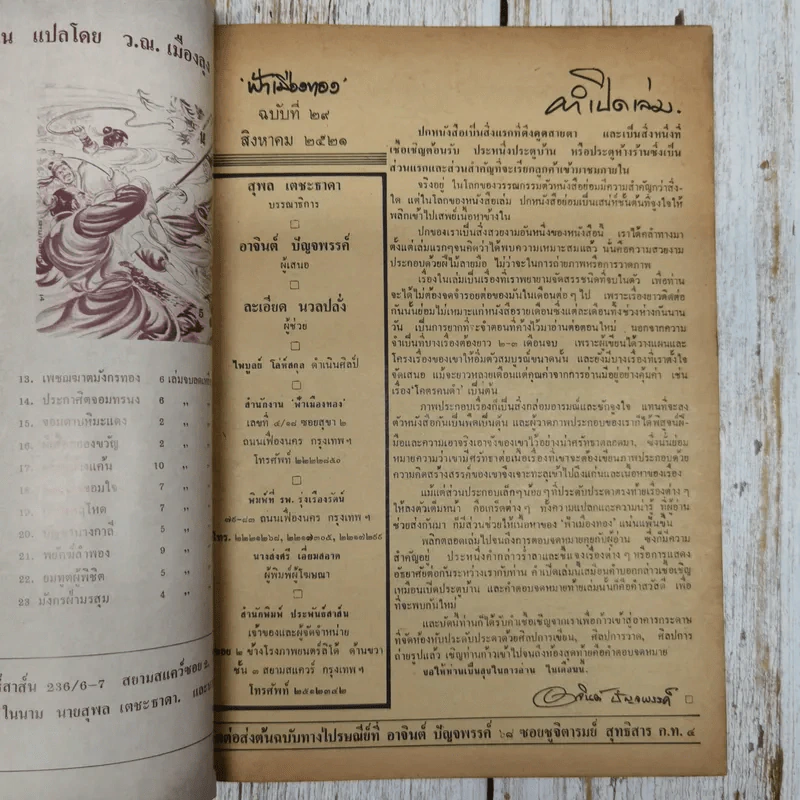 น แปลโดย ว.ณ. เมืองลุง
13. เพชฌฆาตมังกรทอง 6 เล่มจบ
14. ประกาศิตจอมทรนง 6 " "
15. จอมดาบหิมะแดง 2 " "
16. ของขวัญ 2 " "
17. แค้น 10 " "
18. จอมใจ 7 " "
19. โหด 7 " "
20. นางกาลี 5 " "
21. พยัคฆ์ลำพอง 9 " "
22. อมทูตผู้พิชิต 5 " "
23 มังกรผ่ามรสุม 4 " "
สาส์น 236/6-7 สยามสแควร์ซอย ๒
ในนาม นายสุพล เตชะธาดา.
'ฟ้าเมืองทอง'
ฉบับที่ ๒๙
สิงหาคม ๒๕๒๑
สุพล เตชะธาดา
บรรณาธิการ
อาจินต์ ปัญจพรรค์
ผู้เสนอ
ละเอียด นวลปลั่ง
ผู้ช่วย
ไพบูลย์ โล่ห์สกุล ดำเนินศิลป์
สำนักงาน 'ฟ้าเมืองทอง'
เลขที่ ๔/๑๘ ซอยสุขา ๒
ถนนเฟื่องนคร กรุงเทพฯ
โทรศัพท์ ๒๒๒๒๘๕๐
พิมพ์ที่ รพ. รุ่งเรืองรัตน์
๗๙-๘๓ ถนนเฟื่องนคร กรุงเทพฯ
โทร. ๒๒๑๒๑๒๖๘, ๒๒๑๗๓๐๕, ๒๒๑๗๒๙๙
นางส่งศรี เอี่ยมสอาด
ผู้พิมพ์ผู้โฆษณา
สำนักพิมพ์ ประพันธ์สาส์น
เจ้าของและผู้จัดจำหน่าย
ซอย ๒ ข้างโรงภาพยนตร์ลิโด้ ด้านขวา
ชั้น ๓ สยามสแควร์ กรุงเทพฯ
โทรศัพท์ ๒๕๑๒๓๔๒
คำเปิดเล่ม.
ปกหนังสือเป็นสิ่งแรกที่ดึงดูดสายตา และเป็นสิ่งหนึ่งที่
เชื้อเชิญต้อนรับ ประหนึ่งประตูบ้าน หรือประตูห้างร้านซึ่งเป็น
ส่วนแรกและส่วนสำคัญที่จะเรียกลูกค้าเข้ามาชมภายใน
จริงอยู่ ในโลกของวรรณกรรมตัวหนังสือย่อมมีความสำคัญกว่าสิ่ง-
ใด แต่ในโลกของหนังสือเล่ม ปกหนังสือย่อมเป็นเสน่ห์ชั้นต้นที่จูงใจให้
พลิกเข้าไปเสพย์เนื้อหาข้างใน
ปกของเราเป็นสิ่งสวยงามอันหนึ่งของหนังสือนี้ เราได้คลำทางมา
ตั้งแต่เล่มแรกๆจนคิดว่าได้พบความเหมาะสมแล้ว นั่นคือความสวยงาม
ประกอบด้วยฝีไม้ลายมือ ไม่ว่าจะในการถ่ายภาพหรือการวาดภาพ
เรื่องในเล่มเป็นเรื่องที่เราพยายามจัดสรรชนิดที่จบในตัว เพื่อท่าน
จะได้ไม่ต้องจดจำรอยต่อของมันในเดือนต่อๆ ไป เพราะเรื่องยาวติดต่อ
กันนั้นย่อมไม่เหมาะแก่หนังสือรายเดือนซึ่งแต่ละเดือนทิ้งช่วงห่างกันนาน
วัน เป็นการยากที่จะจำตอนที่ค้างไว้มาอ่านต่อตอนใหม่ นอกจากความ
จำเป็นที่บางเรื่องต้องยาว ๒-๓ เดือนจบ เพราะผู้เขียนได้วางแผนและ
โครงเรื่องของเขาให้อิ่มตัวสมบูรณ์ขนาดนั้น และยังมีบางเรื่องที่เราตั้งใจ
จัดเสนอ แม้จะยาวหลายเดือนแต่คุณค่าจากการอ่านมีอยู่อย่างคุ้มค่า เช่น
เรื่อง'โคตรคนดำ' เป็นต้น
ภาพประกอบเรื่องก็เป็นสิ่งกล่อมอารมณ์และชักจูงใจ แทนที่จะลง
ตัวหนังสือกันเป็นพืดเป็นตูม และผู้วาดภาพประกอบของเราก็ได้พิสูจน์ฝี-
มือและความเอาจริงเอาจังของเขาไว้อย่างน่าศรัทธาตลอดมา, ซึ่งนั่นย่อม
หมายความว่าเขามีศรัทธาต่อเนื้อเรื่องที่เขาจะต้องเขียนภาพประกอบด้วย
ความคิดสร้างสรรค์ของเขาจึงเจาะทะลุเข้าไปถึงแก่นและเนื้อหาของเรื่อง
แม้แต่ส่วนประกอบเล็กๆน้อยๆที่ประดับประดาตรงท้ายเรื่องต่างๆ
ให้ลงตัวเต็มหน้า คือเกร็ดต่างๆ ทั้งความแปลกและความน่ารู้ ที่ผู้อ่าน
ช่วยส่งกันมา ก็มีส่วนช่วยให้เนื้อหาของ 'ฟ้าเมืองทอง' แน่นแฟ้นขึ้น
พลิกตลอดเล่มไปจนถึงการตอบจดหมายคุยกับผู้อ่าน ซึ่งก็มีความ
สำคัญอยู่ ประหนึ่งคำกล่าวร่ำลาและชี้แจงเรื่องต่างๆ หรือการแสดง
อัธยาศัยต่อกันระหว่างเรากับท่าน คำเปิดเล่มนั้นเสมือนคำบอกกล่าวเชื้อเชิญ
เหมือนเปิดประตูบ้าน และคำตอบจดหมายท้ายเล่มนั้นก็คือคำสวัสดี เพื่อ
ที่จะพบกันใหม่
และบัดนี้ท่านก็ได้รับคำเชื้อเชิญจากเราเพื่อก้าวเข้าสู่อาคารกระดาษ
ที่จัดห้องหับประดับประดาด้วยศิลปการเขียน, ศิลปการวาด, ศิลปการ
ถ่ายรูปแล้ว เชิญท่านก้าวเข้าไปจนถึงห้องสุดท้ายคือคำตอบจดหมาย
ขอให้ท่านเป็นสุขในการอ่าน ในเดือนนี้.
อาจินต์ ปัญจพรรค์
ติดต่อส่งต้นฉบับทางไปรษณีย์ที่ อาจินต์ ปัญจพรรค์ ๖๘ ซอยชูจิตารมย์ สุทธิสาร ก.ท. ๔